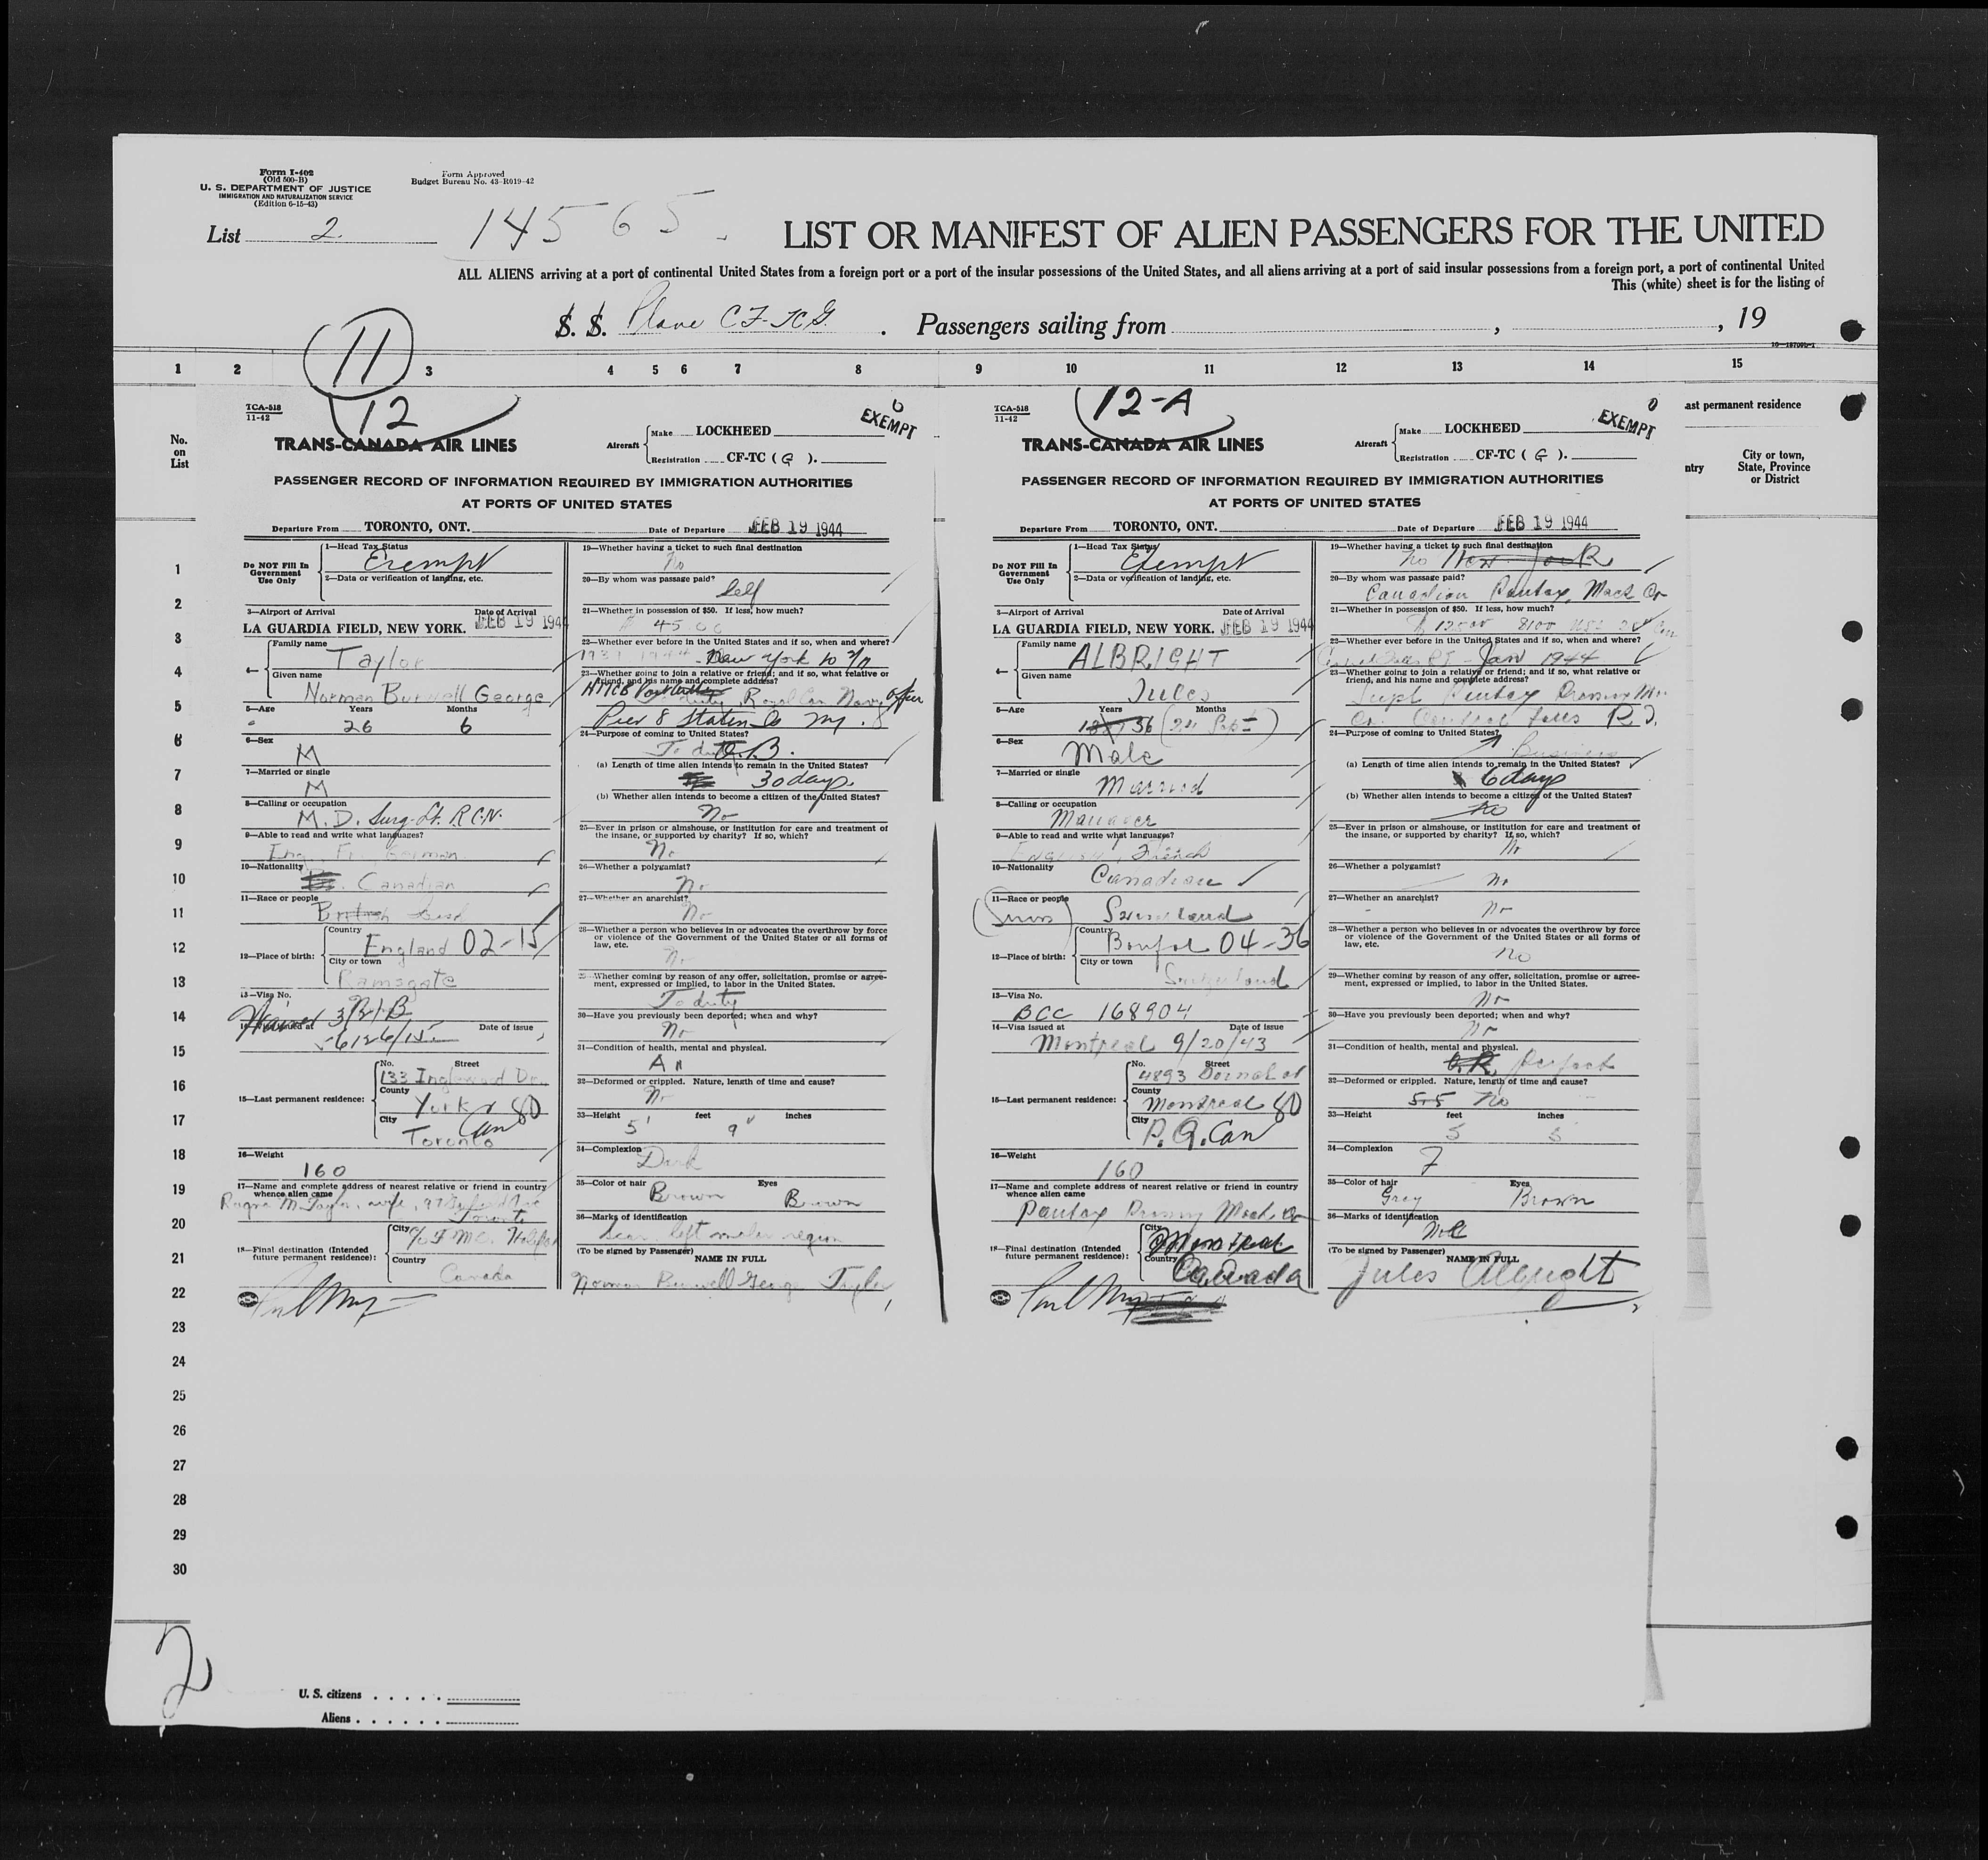 Form I-402
(Old 500-B)
U. S. DEPARTMENT OF JUSTICE
IMMIGRATION AND NATURALIZATION SERVICE
(Edition 6-15-43)
Form Approved
Budget Bureau No. 43-R019-42
List 2
14565
LIST OR MANIFEST OF ALIEN PASSENGERS FOR THE UNITED
ALL ALIENS arriving at a port of continental United States from a foreign port or a port of the insular possessions of the United States, and all aliens arriving at a port of said insular possessions from a foreign port, a port of continental United
This (white) sheet is for the listing of
S. S. Plane CF-TCG. Passengers sailing from , , 19
11
1 2 3 4 5 6 7 8 9 10 11 12 13 14 15
No.
on
List
ast permanent residence
ntry
City or town,
State, Province
or District
TCA-518
11-42
12
EXEMPT
TRANS-CANADA AIR LINES
Aircraft
Make LOCKHEED
Registration CF-TC ( G ).
PASSENGER RECORD OF INFORMATION REQUIRED BY IMMIGRATION AUTHORITIES
AT PORTS OF UNITED STATES
Departure From TORONTO, ONT.
Date of Departure FEB 19 1944
Do NOT Fill In
Government
Use Only
1—Head Tax Status
Exempt
2—Data or verification of landing, etc.
3—Airport of Arrival
Date of Arrival
LA GUARDIA FIELD, NEW YORK. FEB 19 1944
4—
Family name
Taylor
Given name
Norman Burwell George
5—Age Years Months
26 6
6—Sex
M
7—Married or single
M
8—Calling or occupation
M.D. Surg-Lt. R.C.N.
9—Able to read and write what languages?
Eng., Fr., German
10—Nationality
Canadian
11—Race or people
British
12—Place of birth:
Country
England 02-15
City or town
Ramsgate
13—Visa No.
3/2/B
Date of issue
15—Last permanent residence:
No. Street
133 Inglewood Dr.
County
York 80
City
Toronto Can
16—Weight
160
17—Name and complete address of nearest relative or friend in country
whence alien came
M. Taylor, wife, 97
Toronto
18—Final destination (Intended
future permanent residence):
City
Halifax
Country
Canada
19—Whether having a ticket to such final destination
No
20—By whom was passage paid?
Self
21—Whether in possession of $50. If less, how much?
45.00
22—Whether ever before in the United States and if so, when and where?
1944 New York
23—Whether going to join a relative or friend; and if so, what relative or
friend, and his name and complete address?
Royal Can Navy Officer
Pier 8 Staten Is NY.
24—Purpose of coming to United States?
To duty B.
(a) Length of time alien intends to remain in the United States?
30 days
(b) Whether alien intends to become a citizen of the United States?
No
25—Ever in prison or almshouse, or institution for care and treatment of
the insane, or supported by charity? If so, which?
No
26—Whether a polygamist?
No
27—Whether an anarchist?
No
28—Whether a person who believes in or advocates the overthrow by force
or violence of the Government of the United States or all forms of
law, etc.
No
29—Whether coming by reason of any offer, solicitation, promise or agree-
ment, expressed or implied, to labor in the United States.
To duty
30—Have you previously been deported; when and why?
No
31—Condition of health, mental and physical.
A 1
32—Deformed or crippled. Nature, length of time and cause?
No
33—Height feet inches
5' 9"
34—Complexion
Dark
35—Color of hair Eyes
Brown Brown
36—Marks of identification
Scar left malar region
(To be signed by Passenger) NAME IN FULL
Norman Burwell George Taylor
TCA-518
11-42
12-A
EXEMPT
TRANS-CANADA AIR LINES
Aircraft
Make LOCKHEED
Registration CF-TC ( G ).
PASSENGER RECORD OF INFORMATION REQUIRED BY IMMIGRATION AUTHORITIES
AT PORTS OF UNITED STATES
Departure From TORONTO, ONT.
Date of Departure FEB 19 1944
Do NOT Fill In
Government
Use Only
1—Head Tax Status
Exempt
2—Data or verification of landing, etc.
3—Airport of Arrival
Date of Arrival
LA GUARDIA FIELD, NEW YORK. FEB 19 1944
4—
Family name
ALBRIGHT
Given name
Jules
5—Age Years Months
36 (24 Sept)
6—Sex
Male
7—Married or single
Married
8—Calling or occupation
Manager
9—Able to read and write what languages?
English, French
10—Nationality
Canadian
11—Race or people
(Swiss) Switzerland
12—Place of birth:
Country
Bonfol 04-36
City or town
Switzerland
13—Visa No.
BCC 168904
14—Visa issued at Date of issue
Montreal 9/20/43
15—Last permanent residence:
No. Street
4893 Dornal
County
Montreal 80
City
P.Q. Can
16—Weight
160
17—Name and complete address of nearest relative or friend in country
whence alien came
18—Final destination (Intended
future permanent residence):
City
Montreal
Country
Canada
19—Whether having a ticket to such final destination
No New York
20—By whom was passage paid?
Canadian
21—Whether in possession of $50. If less, how much?
22—Whether ever before in the United States and if so, when and where?
Central Falls RI Jan 1944
23—Whether going to join a relative or friend; and if so, what relative or
friend, and his name and complete address?
Co. Central Falls R.I.
24—Purpose of coming to United States?
Business
(a) Length of time alien intends to remain in the United States?
6 days
(b) Whether alien intends to become a citizen of the United States?
No
25—Ever in prison or almshouse, or institution for care and treatment of
the insane, or supported by charity? If so, which?
No
26—Whether a polygamist?
No
27—Whether an anarchist?
No
28—Whether a person who believes in or advocates the overthrow by force
or violence of the Government of the United States or all forms of
law, etc.
no
29—Whether coming by reason of any offer, solicitation, promise or agree-
ment, expressed or implied, to labor in the United States.
No
30—Have you previously been deported; when and why?
No
31—Condition of health, mental and physical.
Perfect
32—Deformed or crippled. Nature, length of time and cause?
5-5 No
33—Height feet inches
5 5
34—Complexion
F
35—Color of hair Eyes
Gray Brown
36—Marks of identification
(To be signed by Passenger) NAME IN FULL
Jules Albright
1
2
3
4
5
6
7
8
9
10
11
12
13
14
15
16
17
18
19
20
21
22
23
24
25
26
27
28
29
30
2
U. S. citizens
Aliens